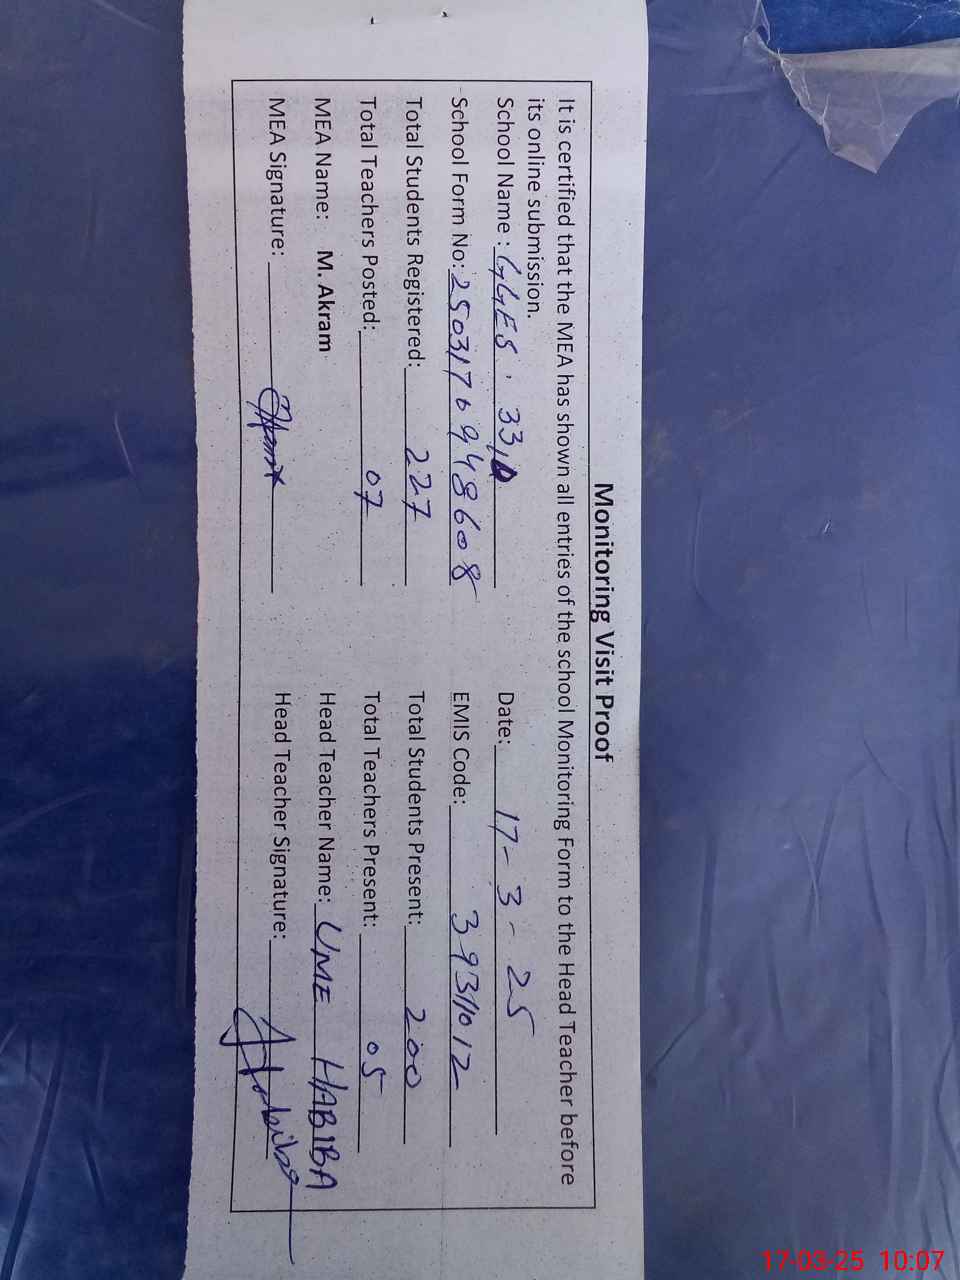 Monitoring Visit Proof
It is certified that the MEA has shown all entries of the school Monitoring Form to the Head Teacher before
its online submission.
School Name : GGES . 33 Date: 17 - 3 - 25
School Form No: 2503170948608 EMIS Code: 39311012
Total Students Registered: 227 Total Students Present: 200
Total Teachers Posted: 07 Total Teachers Present: 05
MEA Name: M. Akram Head Teacher Name: UME HABIBA
MEA Signature: Head Teacher Signature: Habiba
17-03-25 10:07